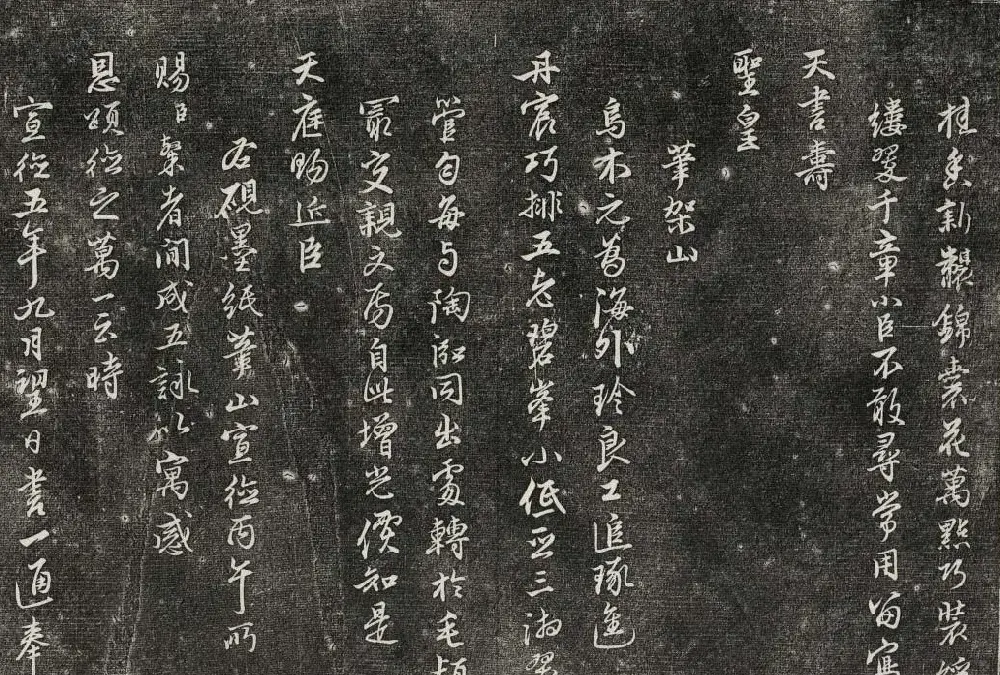 桂香新製錦囊花萬點巧裝
縷翠千章小臣不敢尋常用留寫
天書壽
聖皇
筆架山
烏木元為海外珍良工追琢進
丹宸巧排五老碧峯小低亞三洲翠
管句每与陶泓同出處轉於毛穎
最交親文房自此增光價知是
天庭賜近臣
右硯墨紙筆山宣德丙午所
賜臣槃者間成五詠以寓感
恩頌德之萬一云時
宣德五年九月望日書一通奉